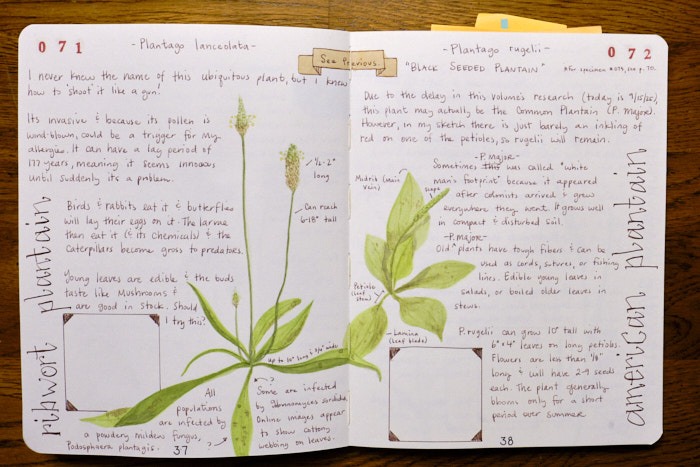 071
- Plantago lanceolata -
See Previous.
I never knew the name of this ubiquitous plant, but I knew
how to 'shoot' it like a gun!
Its invasive & because its pollen is
wind blown, could be a trigger for my
allergies. It can have a lag period of
177 years, meaning it seems innocous
until suddenly its a problem.
Birds & rabbits eat it & butterflies
will lay their eggs on it. The larvae
then eat it (& its chemicals) & the
caterpillars become gross to predators.
Young leaves are edible & the buds
taste like mushrooms &
are good in stock. Should
I try this?
ribwort plantain
½-2"
long
Can reach
6-18" tall
up to 10" long &
wide
All
populations
are infected by
a powdery mildew fungus,
Podosphaera plantaginis.
Some are infected
by
Online images appear
to show cottony
webbing on leaves.
37
- Plantago rugelii -
072
"BLACK SEEDED PLANTAIN"
*For specimen #075, see p. 70.
Due to the delay in this volume's research (today is
this plant may actually be the Common Plantain (P. Major).
However, in my sketch there is just barely an inkling of
red on one of the petioles, so rugelii will remain.
-P. major-
Sometimes this was called "white
man's footprint" because it appeared
after colonists arrived & grew
everywhere they went. It grows well
in compact & disturbed soil.
-P. major-
Old ^ plants have tough fibers & can be
used as cords, sutures, or fishing
lines. Edible young leaves in
salads, or boiled older leaves in
stews.
Midrib (main
vein)
scape
Petiole
(leaf
stem)
Lamina
(leaf blade)
P. rugelii can grow 10" tall with
6"x4" leaves on long petioles.
Flowers are less than 1/8"
long & will have 2-9 seeds
each. The plant generally
blooms only for a short
period over summer.
american plantain
38